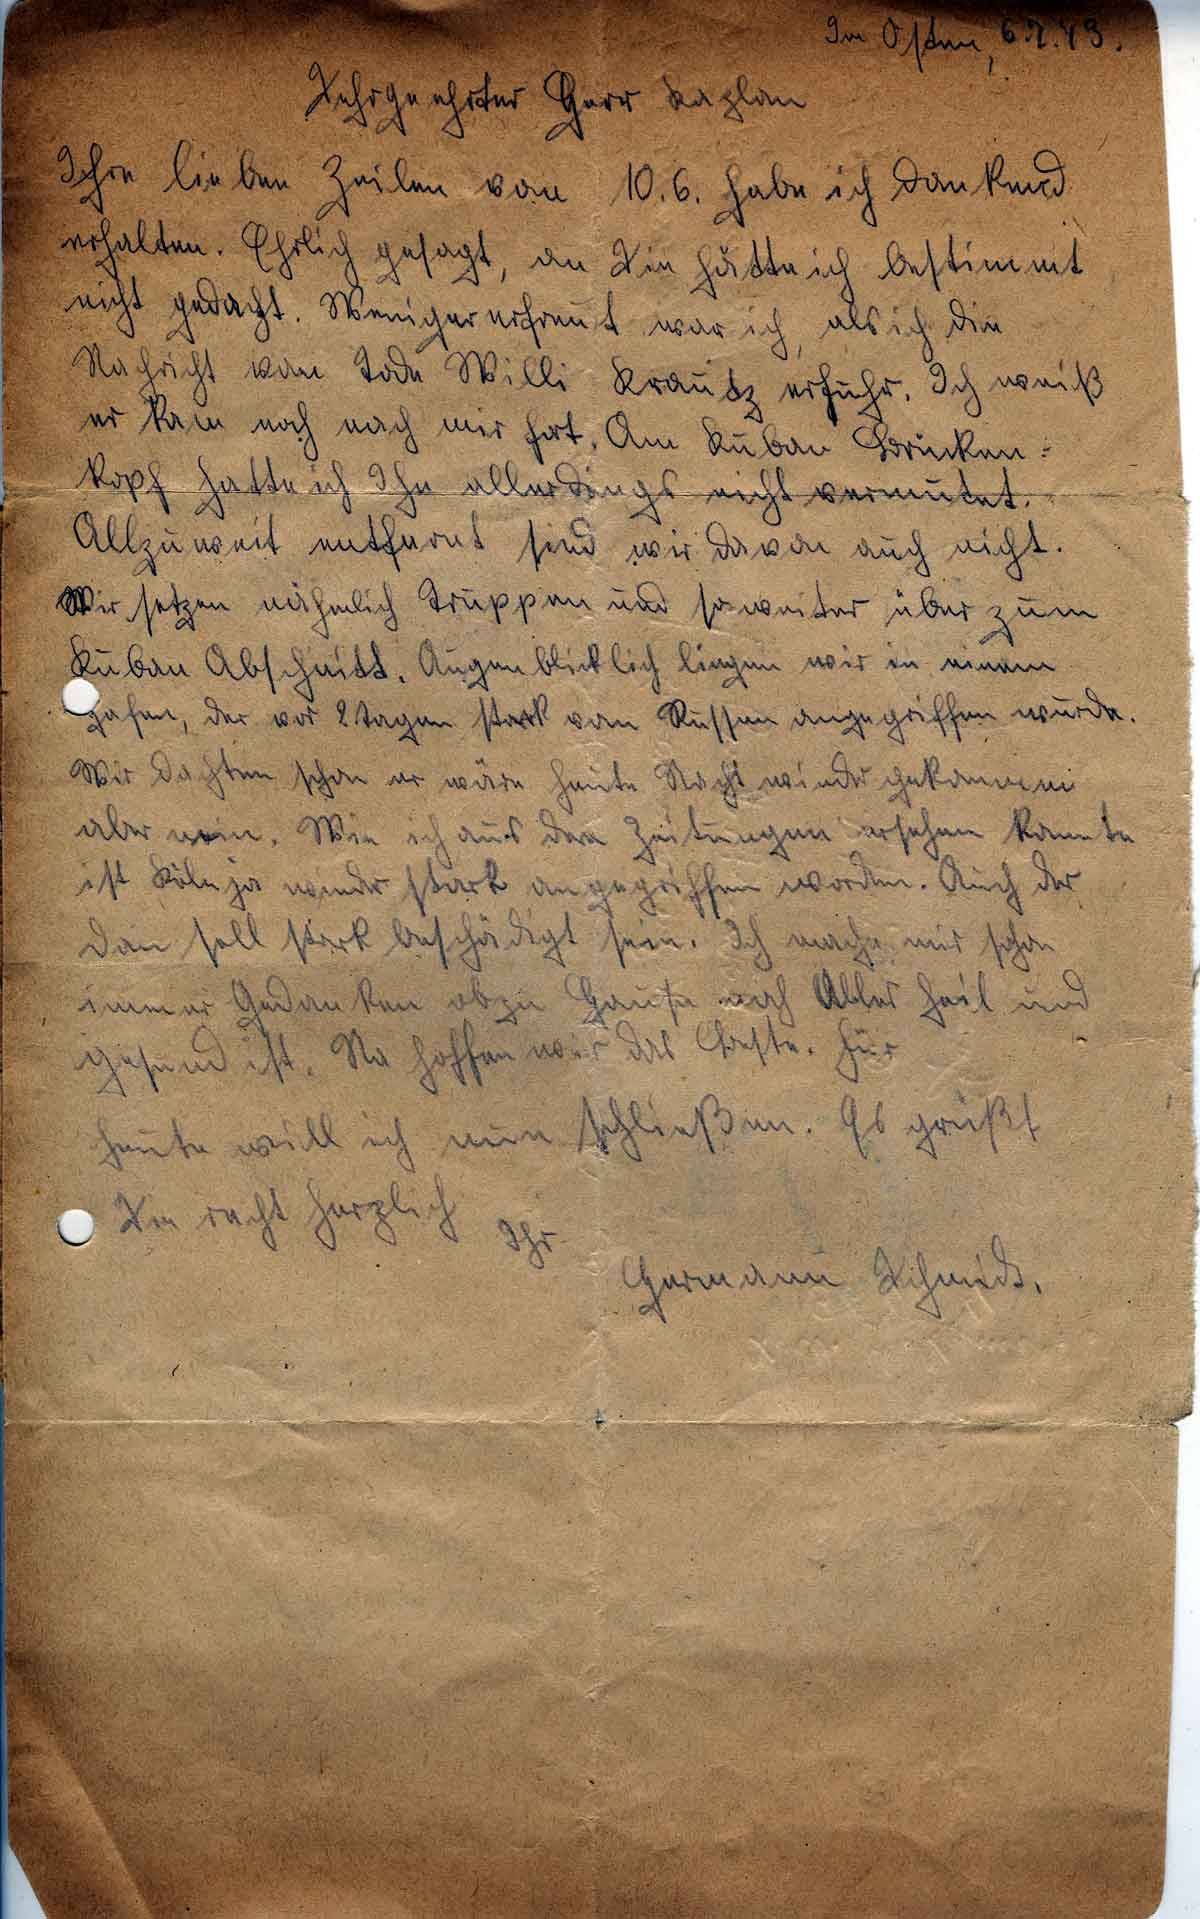 Im Osten, 6.7.43.
Sehrgeehrter Herr Kaplan
Ihre lieben Zeilen von 10.6. habe ich dankend
erhalten. Ehrlich gesagt, an Sie hätte ich bestimmt
nicht gedacht. Weniger erfreut war ich, als ich die
Nachricht vom Tode Willi Krautz erfuhr. Ich weiß
er kam noch nach mir fort. Am Kuban Brücken=
kopf hatte ich Ihn allerdings nicht vermutet.
Allzuweit entfernt sind wir davon auch nicht.
Wir setzen nähmlich Truppen und soweiter über zum
Kuban Abschnitt. Augenblicklich liegen wir in einem
Hafen, der vor 2 Tagen stark von Russen angegriffen wurde.
Wir dachten schon er wäre heute Nacht wieder gekommen
aber nein. Wie ich aus den Zeitungen ersehen konnte
ist Köln ja wieder stark angegriffen worden. Auch der
Dom soll stark beschädigt sein. Ich mache mir schon
immer Gedanken ob zu Hause noch Alles heil und
gesund ist. Na hoffen wir das Beste. Für
heute will ich nun schließen. Es grüßt
Sie recht herzlich
Ihr
Hermann Schmidt.